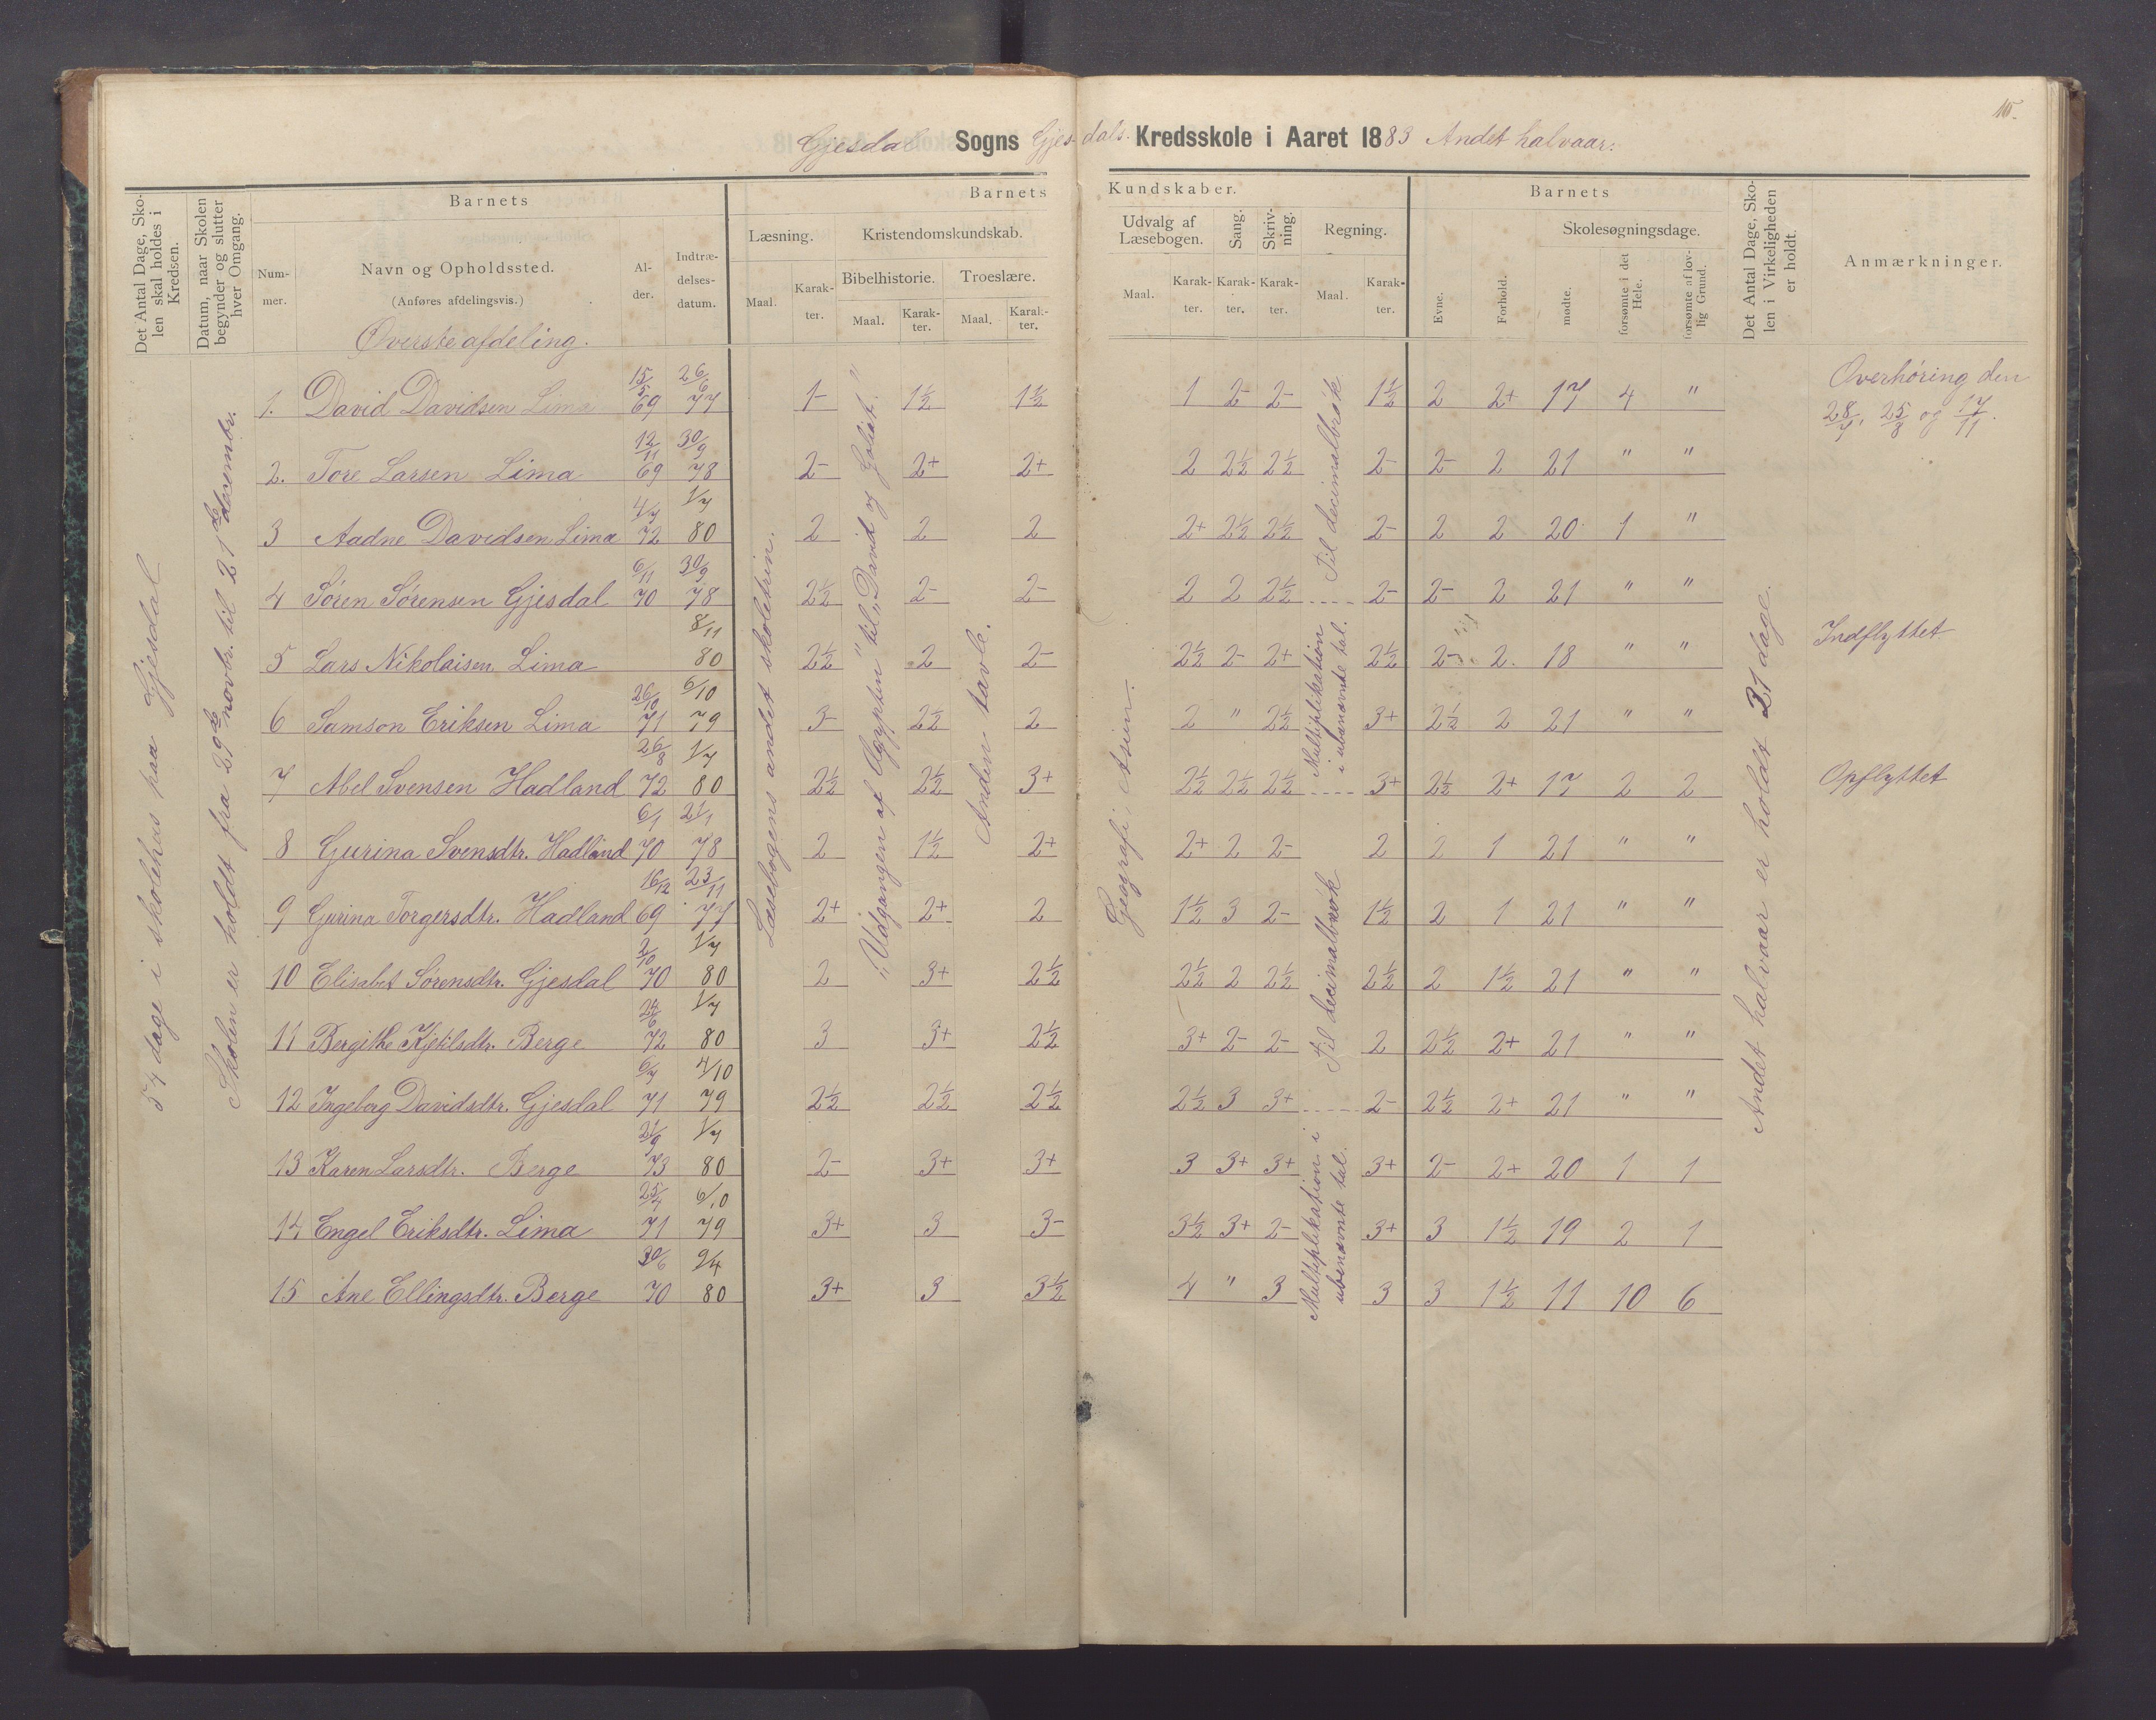 15.
Gjesdal Sogns Gjesdals Kredsskole i Aaret 1883 Andet halvaar.
Det Antal Dage, Skolen skal holdes i Kredsen.
Datum, naar Skolen begynder og slutter hver Omgang.
Barnets
Nummer.
Navn og Opholdssted.
(Anføres afdelingsvis.)
Alder.
Indtrædelsesdatum.
Barnets Kundskaber.
Læsning.
Maal. Karakter.
Kristendomskundskab.
Bibelhistorie. Troeslære.
Maal. Karakter. Maal. Karakter.
Udvalg af Læsebogen.
Maal. Karakter.
Sang. Karakter.
Skrivning. Karakter.
Regning.
Maal. Karakter.
Barnets
Evne. Forhold.
Skolesøgningsdage.
mødte. forsømte i det Hele. forsømte af lovlig Grund.
Det Antal Dage, Skolen i Virkeligheden er holdt.
Anmærkninger.
Øverste afdeling.
54 dage i skolehus paa Gjesdal
Skolen er holdt fra 29de novbr. til 21de decembr.
Læsebogens andet skoletrin.
"Udgangen af Ægypten" til "David og Goliat."
Anden tavle.
Geografi, Asien.
Til decimalbrøk
Multiplikation i ubenævnte tal.
Til decimalbrøk
Multiplikation i ubenævnte tal.
Andet halvaar er holdt 21 dage.
1. David Davidsen Lima 15/5 69 26/6 77 1- 1½ 1½ 1 2- 2- 1½ 2 2+ 17 4 " Overhøring den 28/7, 25/8 og 17/11.
2. Tore Larsen Lima 12/11 69 30/9 78 2- 2+ 2+ 2 2½ 2½ 2- 2- 2 21 " "
3 Aadne Davidsen Lima 4/7 72 1/7 80 2 2 2 2+ 2½ 2½ 2- 2 2 20 1 "
4 Søren Sørensen Gjesdal 6/11 70 30/9 78 2½ 2- 2- 2 2 2½ 2- 2- 2 21 " "
5 Lars Nikolaisen Lima 8/11 80 2½ 2 2- 2½ 2- 2+ 2½ 2- 2. 18 " " Indflyttet
6 Samson Eriksen Lima 26/10 71 6/10 79 3- 2½ 2 2 " 2½ 3+ 2½ 2 21 " "
7 Abel Svensen Hadland 26/8 72 1/7 80 2½ 2½ 3+ 2½ 2½ 2½ 3+ 2½ 2+ 17 2 2 Opflyttet
8 Gurina Svensdtr. Hadland 6/1 70 21/1 78 2 1½ 2+ 2+ 2 2- 2 2 1 21 " "
9 Gurina Torgersdtr. Hadland 16/12 69 23/11 77 2+ 2+ 2 1½ 3 2- 1½ 2 1 21 " "
10 Elisabet Sørensdtr. Gjesdal 2/10 70 1/7 80 2 3+ 2½ 2½ 2 2½ 2½ 2 1½ 21 " "
11 Bergithe Kjetilsdtr. Berge 24/6 72 1/7 80 3 3+ 2½ 3+ 2- 2- 2 2½ 2+ 21 " "
12 Ingeborg Davidsdtr. Gjesdal 6/7 71 7/10 79 2½ 2½ 2½ 2½ 3 3+ 2- 2½ 2+ 21 " "
13 Karen Larsdtr. Berge 21/9 73 1/7 80 2- 3+ 3+ 3 3+ 3+ 3+ 2- 2+ 20 1 1
14 Engel Eriksdtr. Lima 25/4 71 6/10 79 3+ 3 3- 3½ 3+ 2- 3+ 3 1½ 19 2 1
15 Ane Ellingsdtr. Berge 30/6 70 9/4 80 3+ 3 3½ 4 " 3 3 3 1½ 11 10 6